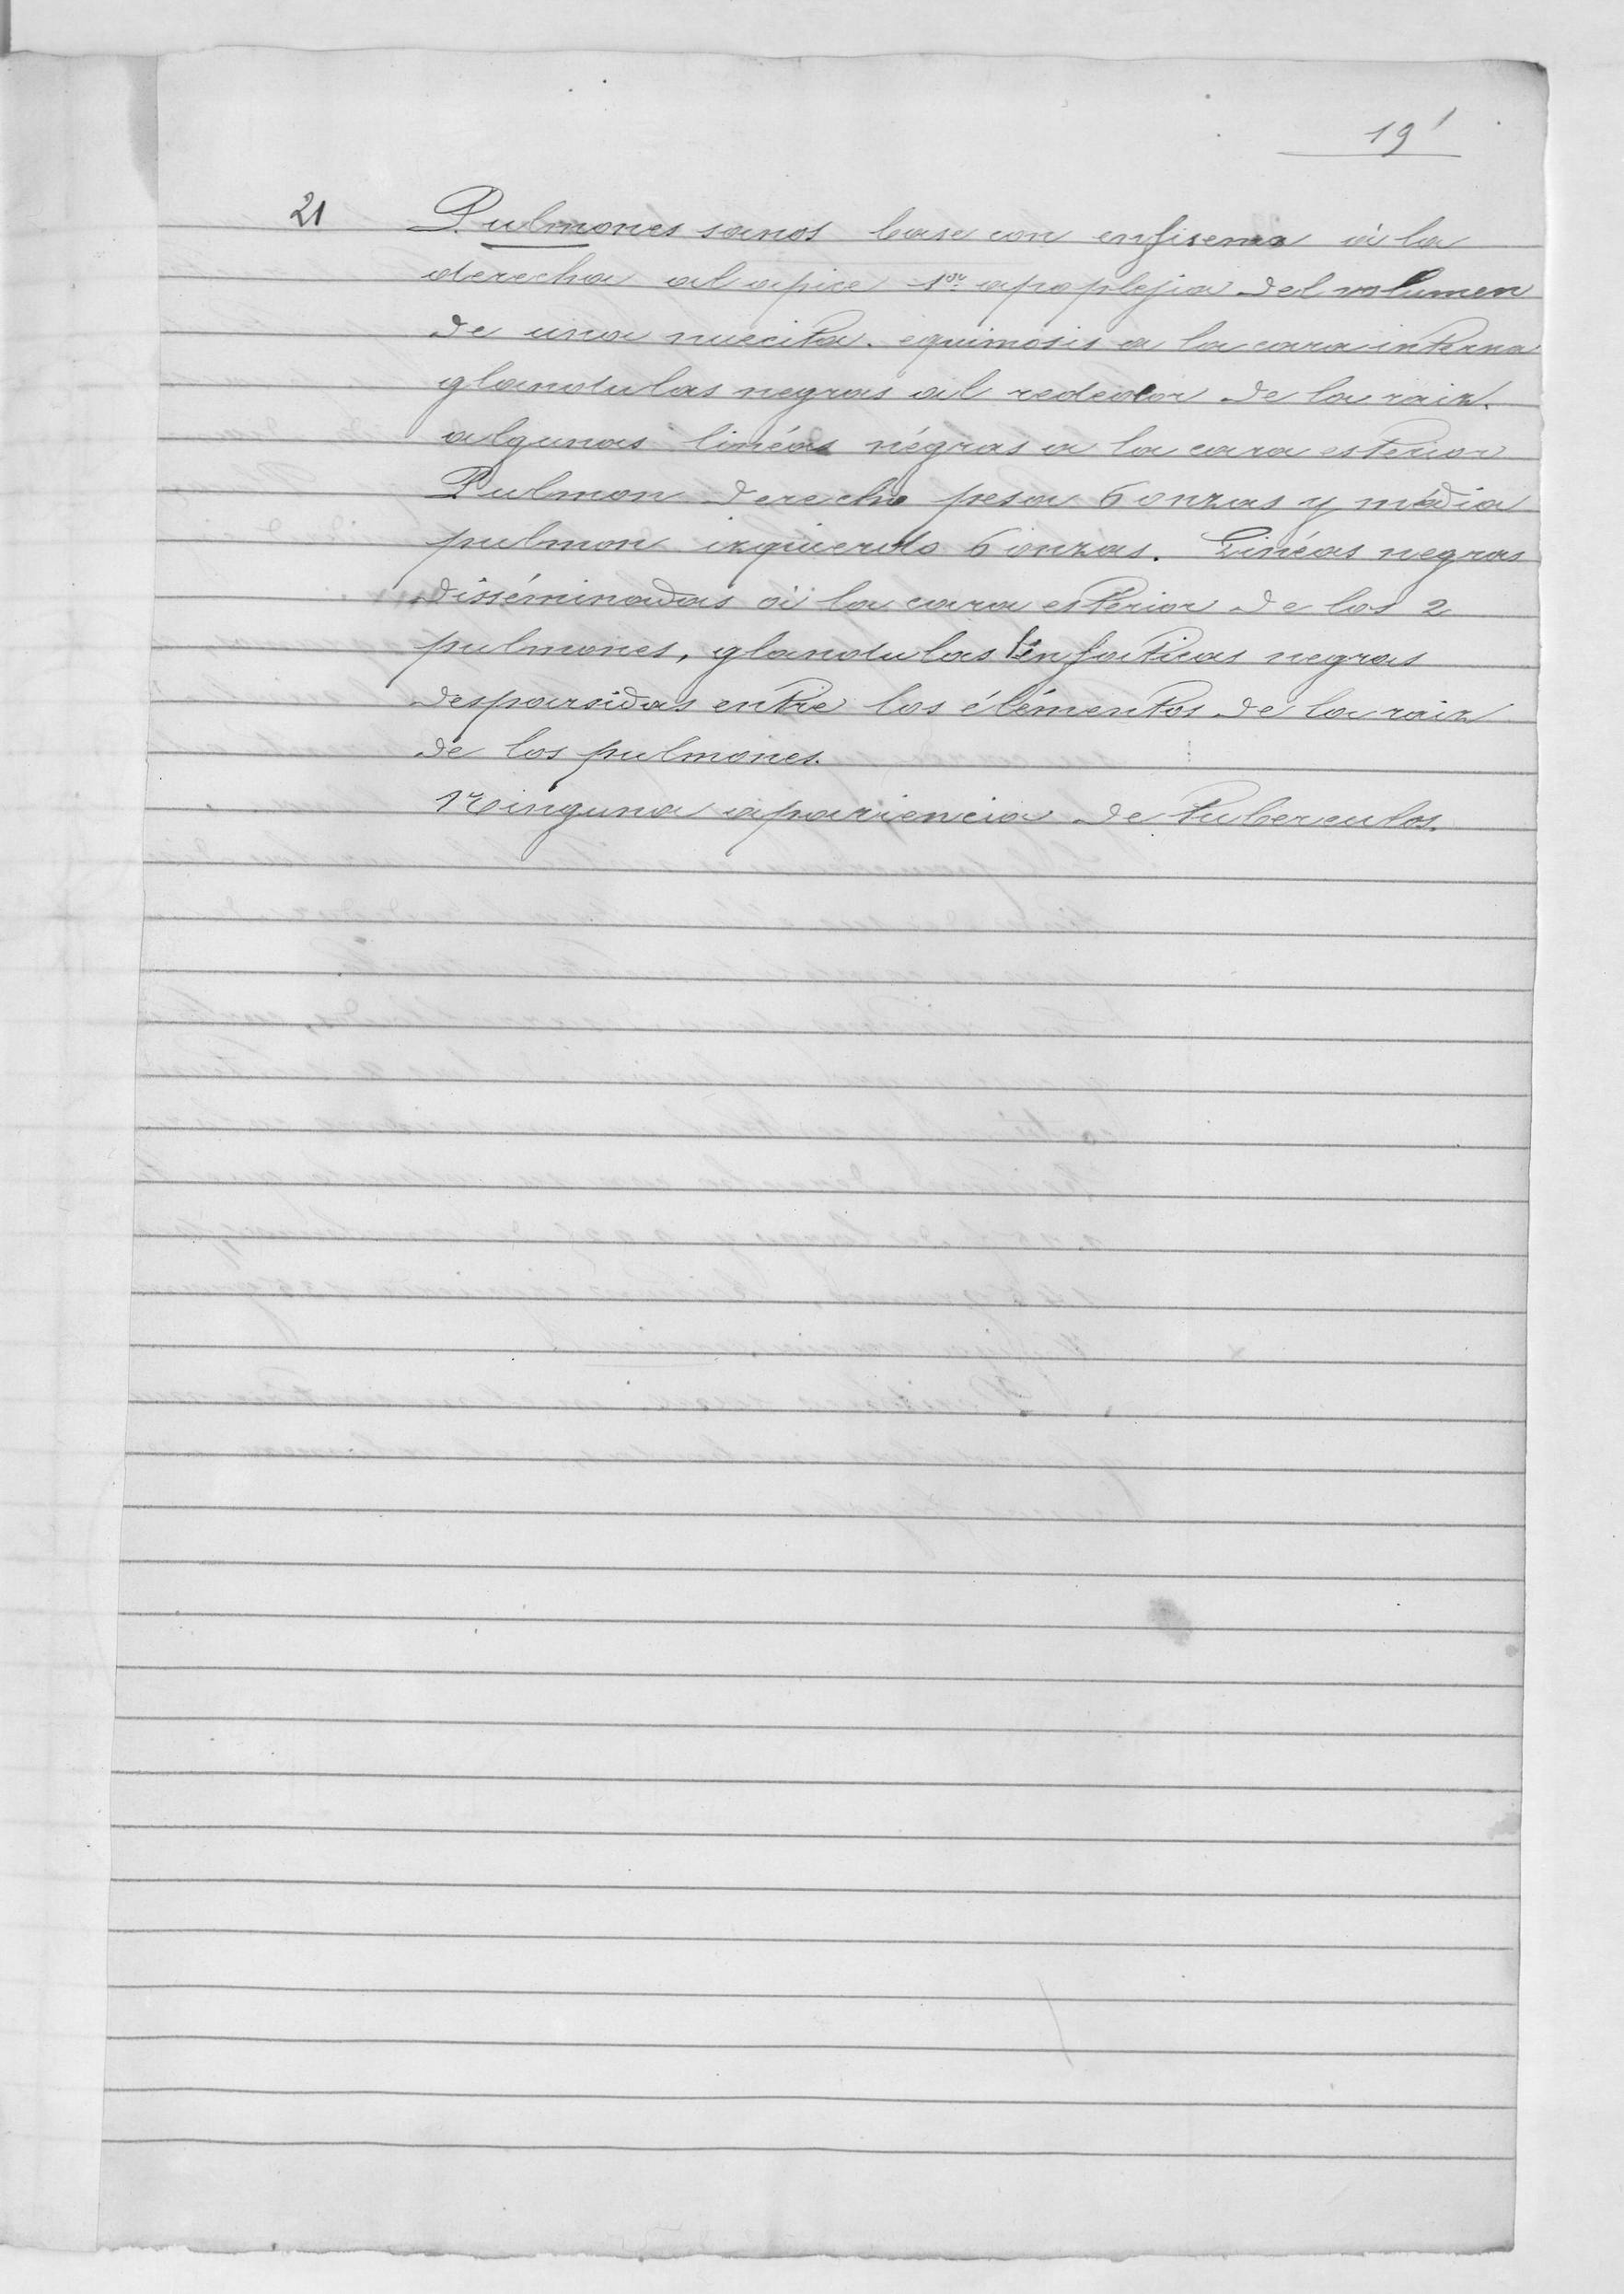 19'
21 Pulmones sanos base con enfisema à la
derecha al apice 1er apoplejia del volumen
de una nuecita. equimosis a la cara interna
glandulas negras al rededor de la raiz.
algunas linéas négras a la cara esterior
Pulmon derecho pesa 6 onzas y media
pulmon izquierdo 6 onzas. Linéas negras
disséminadas à la cara esterior de los 2
pulmones, glandulas linfaticas negras
desparsidas entre los éléméntos de la raiz
de los pulmones.
Ninguna apariencia de tuberculos.